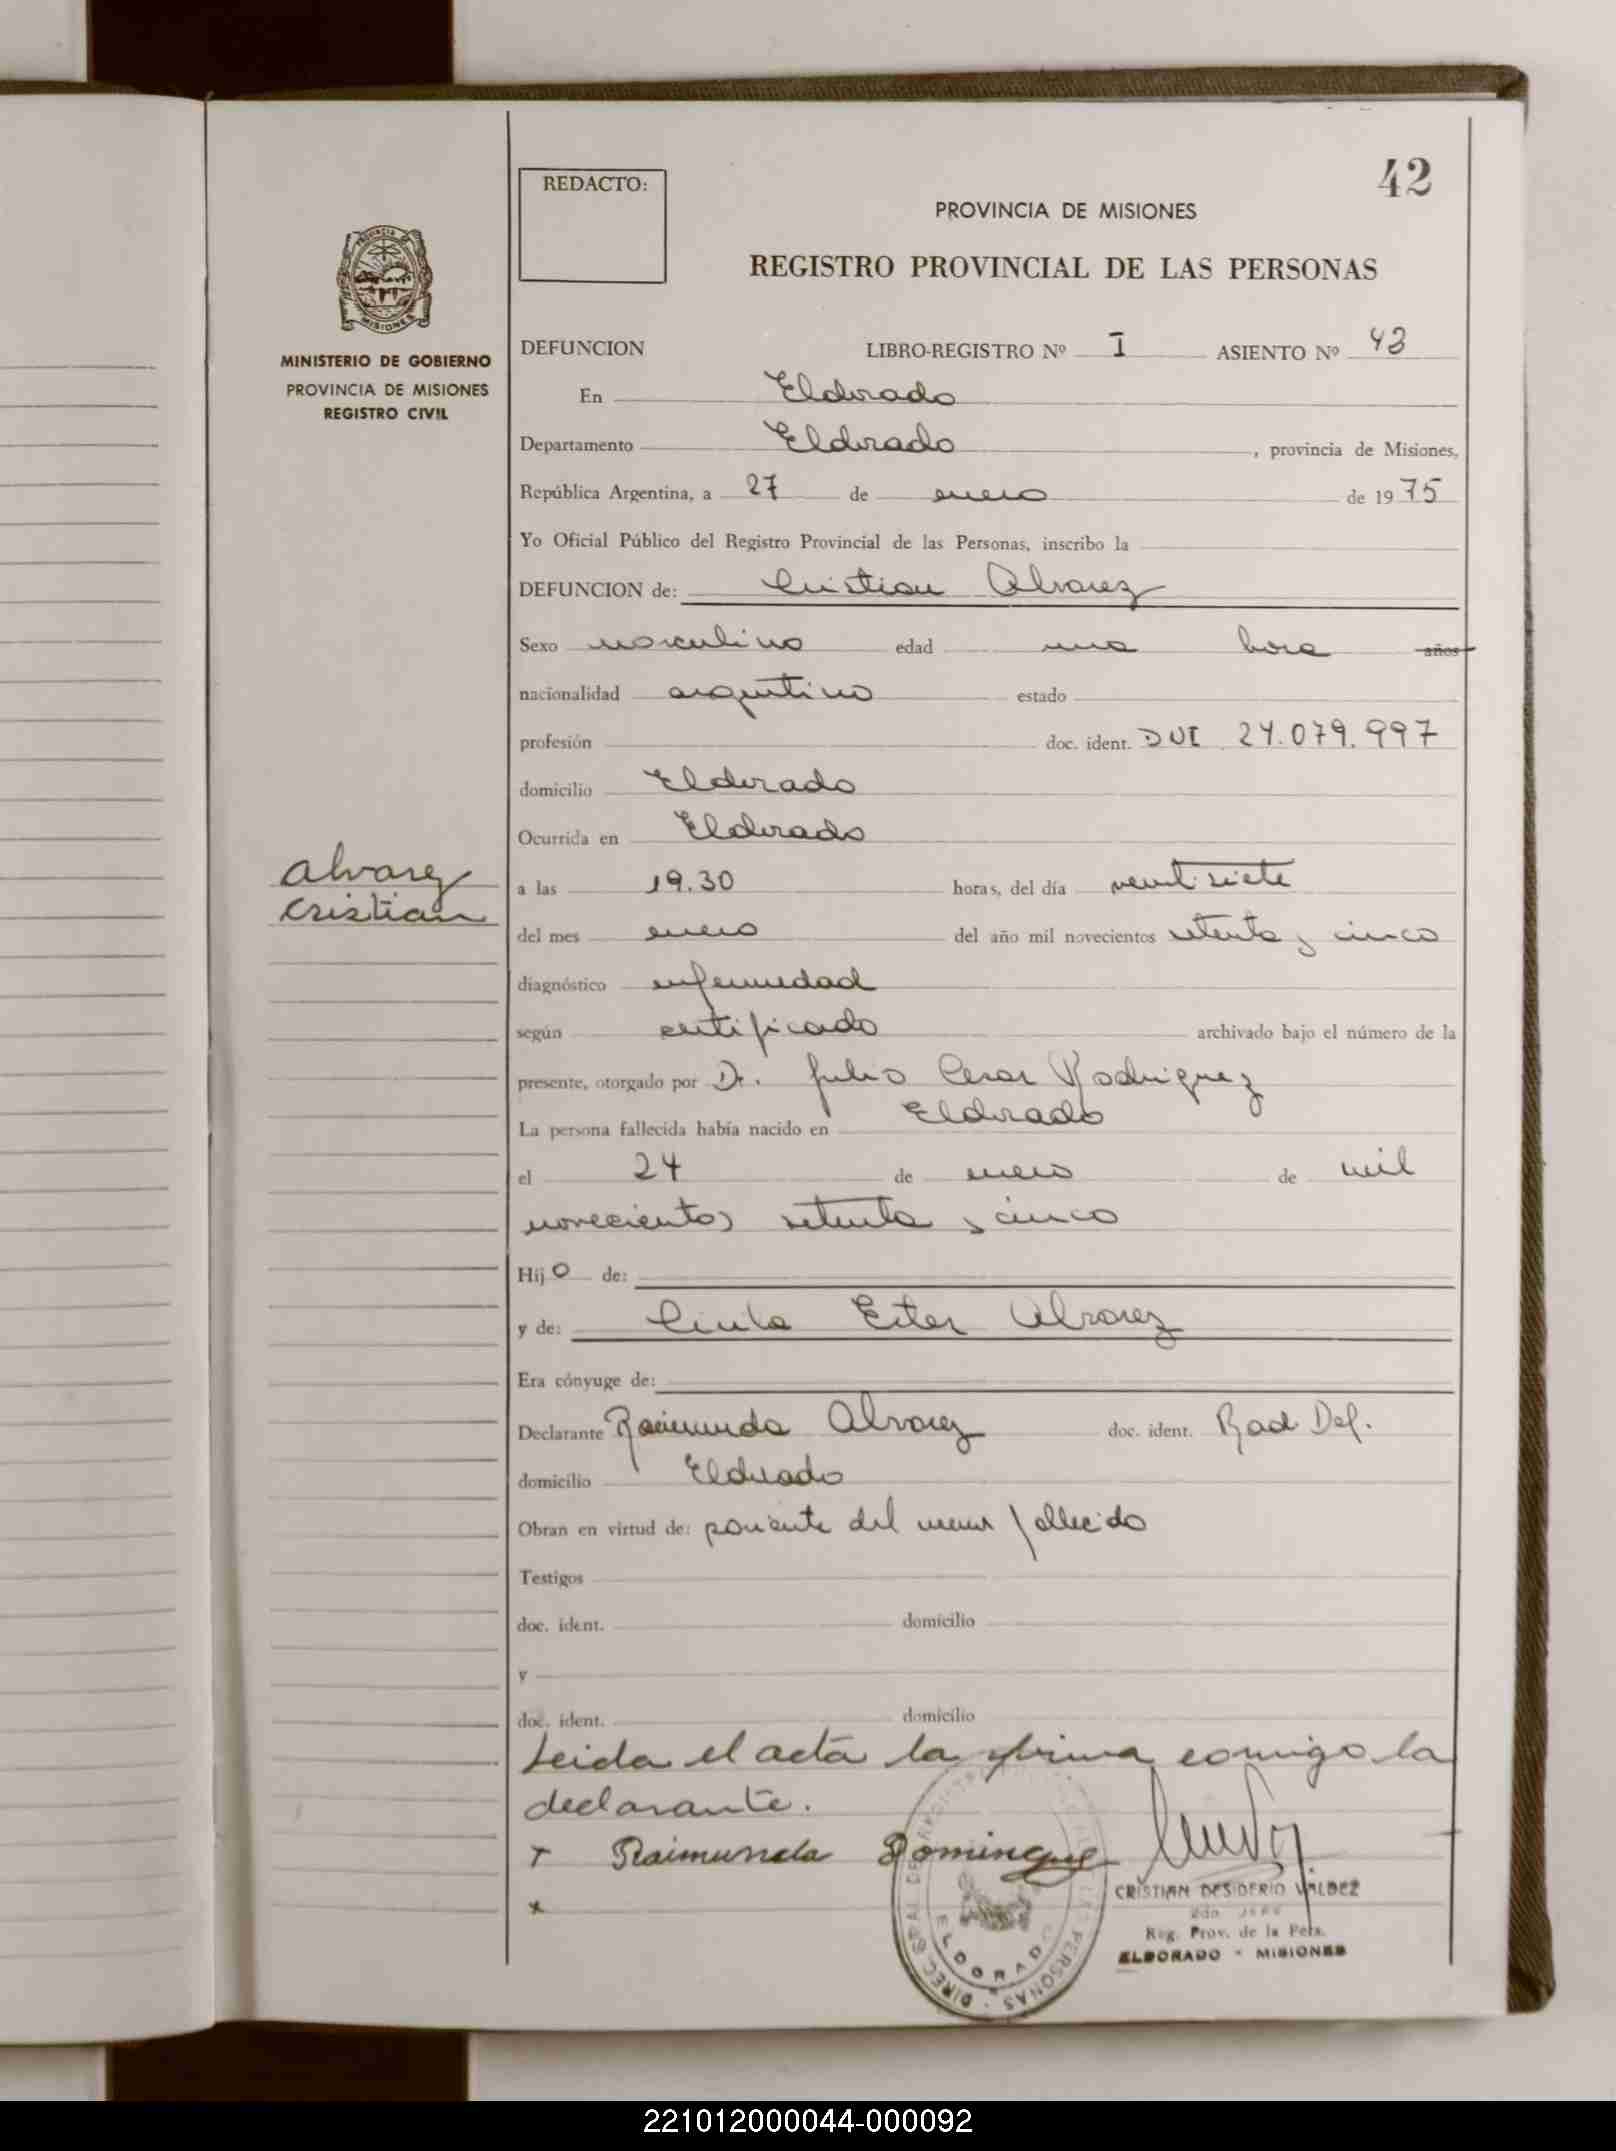 42
REDACTO:
PROVINCIA DE MISIONES
REGISTRO PROVINCIAL DE LAS PERSONAS
MINISTERIO DE GOBIERNO
PROVINCIA DE MISIONES
REGISTRO CIVIL
DEFUNCION LIBRO-REGISTRO Nº I ASIENTO Nº 43
En Eldorado
Departamento Eldorado, provincia de Misiones,
República Argentina, a 27 de enero de 1975
Yo Oficial Público del Registro Provincial de las Personas, inscribo la
DEFUNCION de: Cristian Alvarez
Sexo masculino edad una hora años
nacionalidad argentino estado
profesión doc. ident. DUI 24.079.997
domicilio Eldorado
Ocurrida en Eldorado
Alvarez
Cristian
a las 19.30 horas, del día veintisiete
del mes enero del año mil novecientos setenta y cinco
diagnóstico enfermedad
según certificado archivado bajo el número de la
presente, otorgado por Dr. Julio Cesar Rodriguez
La persona fallecida había nacido en Eldorado
el 24 de enero de mil
novecientos setenta y cinco
Hijo de:
y de: Ester Alvarez
Era cónyuge de:
Declarante Raimunda Alvarez doc. ident. Rad Def.
domicilio Eldorado
Obran en virtud de: pariente del menor fallecido
Testigos
doc. ident. domicilio
y
doc. ident. domicilio
Leida el acta la firma conmigo la
declarante.
+ Raimunda Domingue
x
CRISTIAN DESIDERIO VALDEZ
2do JEFE
Reg. Prov. de la Pers.
ELDORADO - MISIONES
221012000044-000092